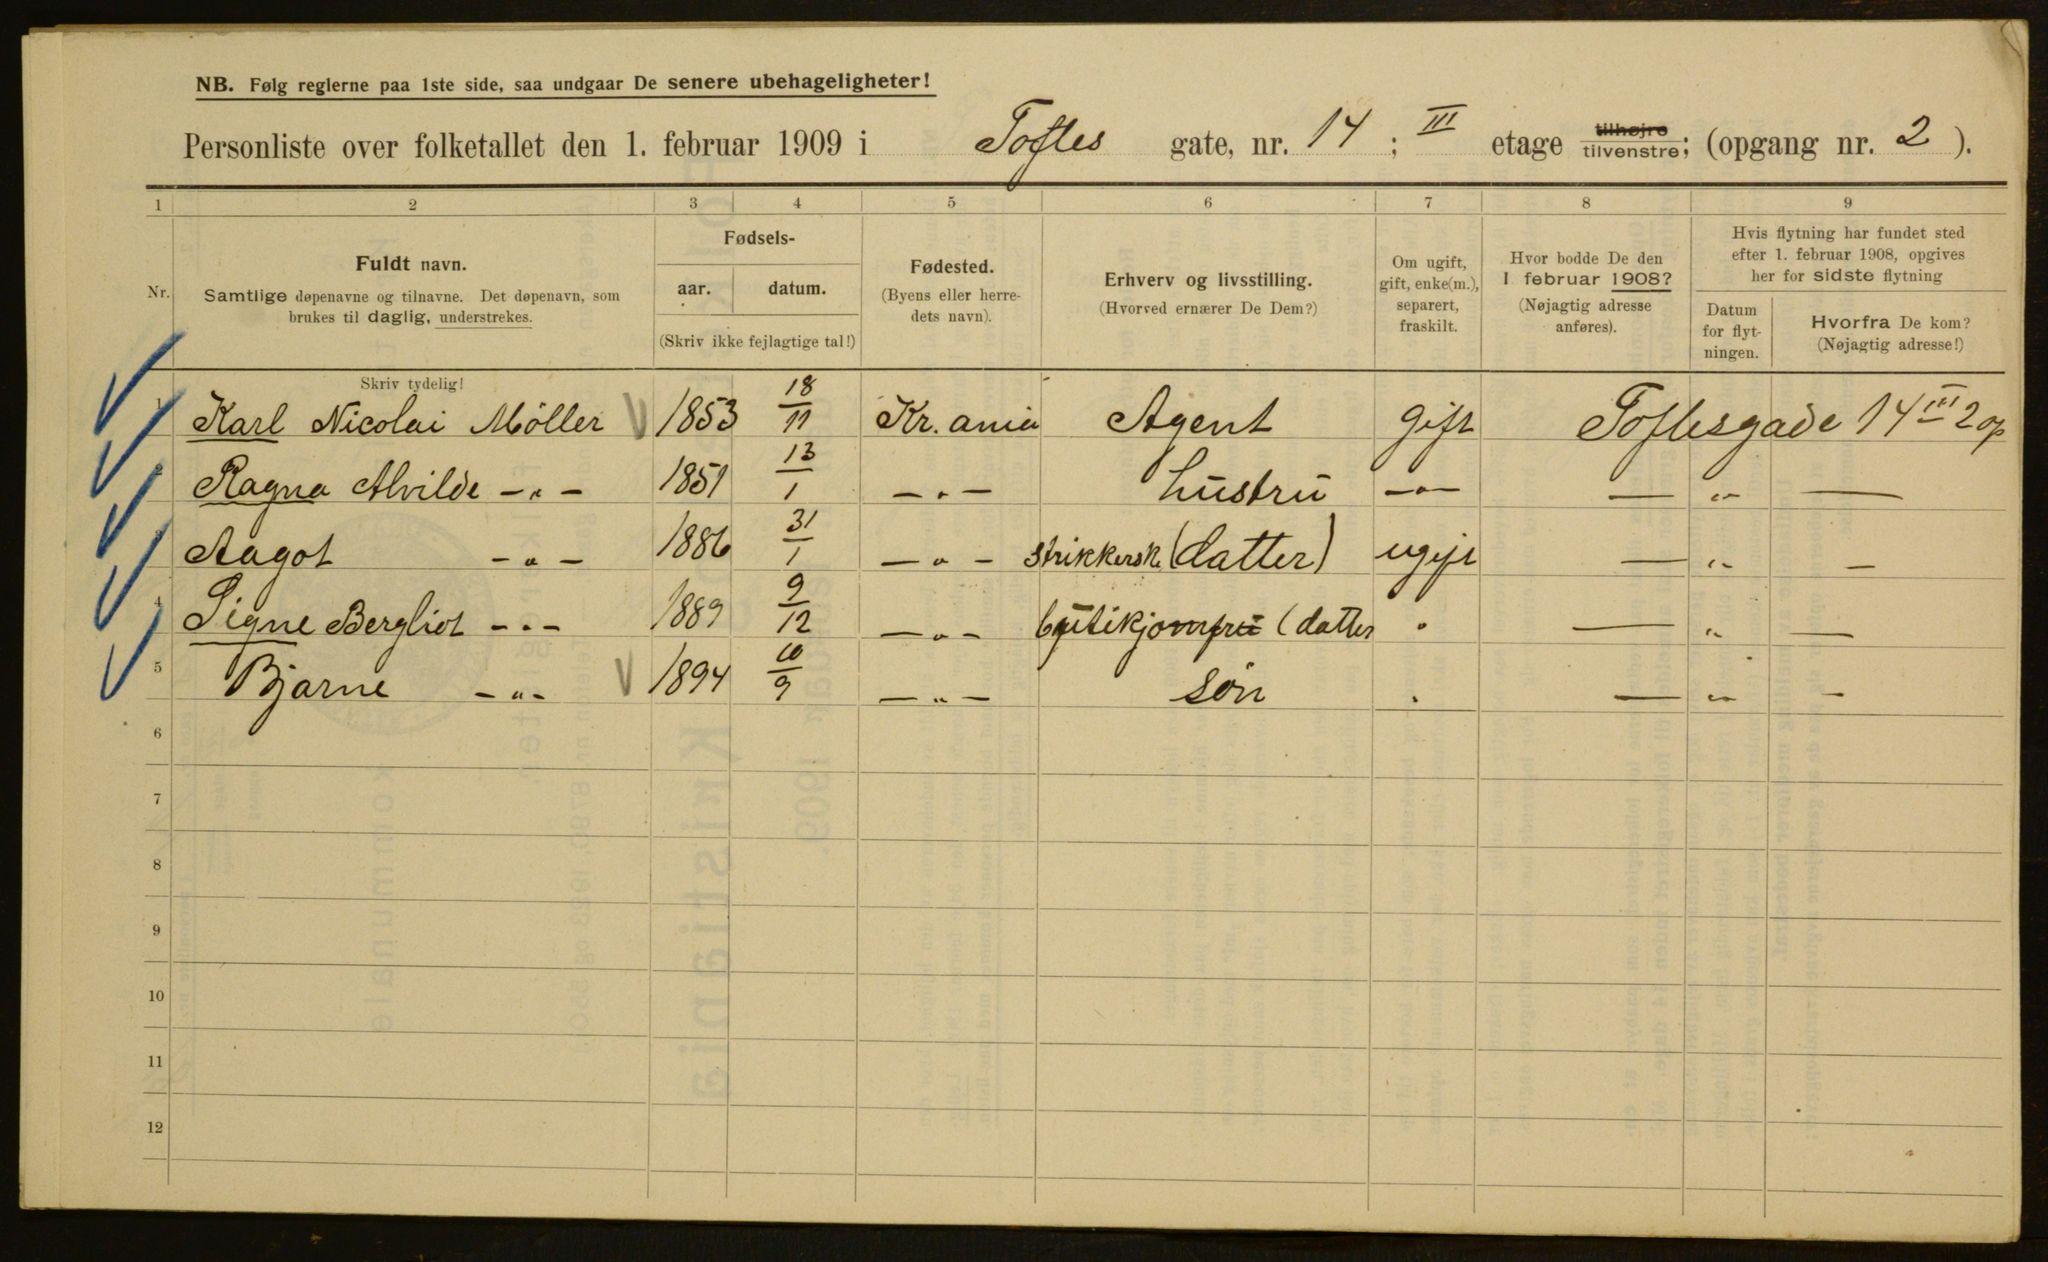 NB. Følg reglerne paa 1ste side, saa undgaar De senere ubehageligheter!
Personliste over folketallet den 1. februar 1909 i Toftes gate, nr. 14 ; III etage tilhøjre tilvenstre; (opgang nr. 2 ).
1 2 3 4 5 6 7 8 9
Nr.
Fuldt navn.
Samtlige døpenavne og tilnavne. Det døpenavn, som
brukes til daglig, understrekes.
Fødsels-
aar. datum.
(Skriv ikke fejlagtige tal!)
Fødested.
(Byens eller herre-
dets navn).
Erhverv og livsstilling.
(Hvorved ernærer De Dem?)
Om ugift,
gift, enke(m.),
separert,
fraskilt.
Hvor bodde De den
1 februar 1908?
(Nøjagtig adresse
anføres).
Hvis flytning har fundet sted
efter 1. februar 1908, opgives
her for sidste flytning
Datum
for flyt-
ningen.
Hvorfra De kom?
(Nøjagtig adresse!)
Skriv tydelig!
1 Karl Nicolai Möller 1853 18/11 Kr. ania Agent gift Toftesgade 14 III 2 op
2 Ragna Alvilde —„— 1851 13/1 —„— Hustru —„— — „ —
3 Aagot —„— 1886 31/1 —„— strikkersk. (datter) ugift — „ —
4 Signe Bergliot —„— 1889 9/12 —„— butikjomfru (datter „ — „ —
5 Bjarne —„— 1894 10/9 —„— søn „ — „ —
6
7
8
9
10
11
12